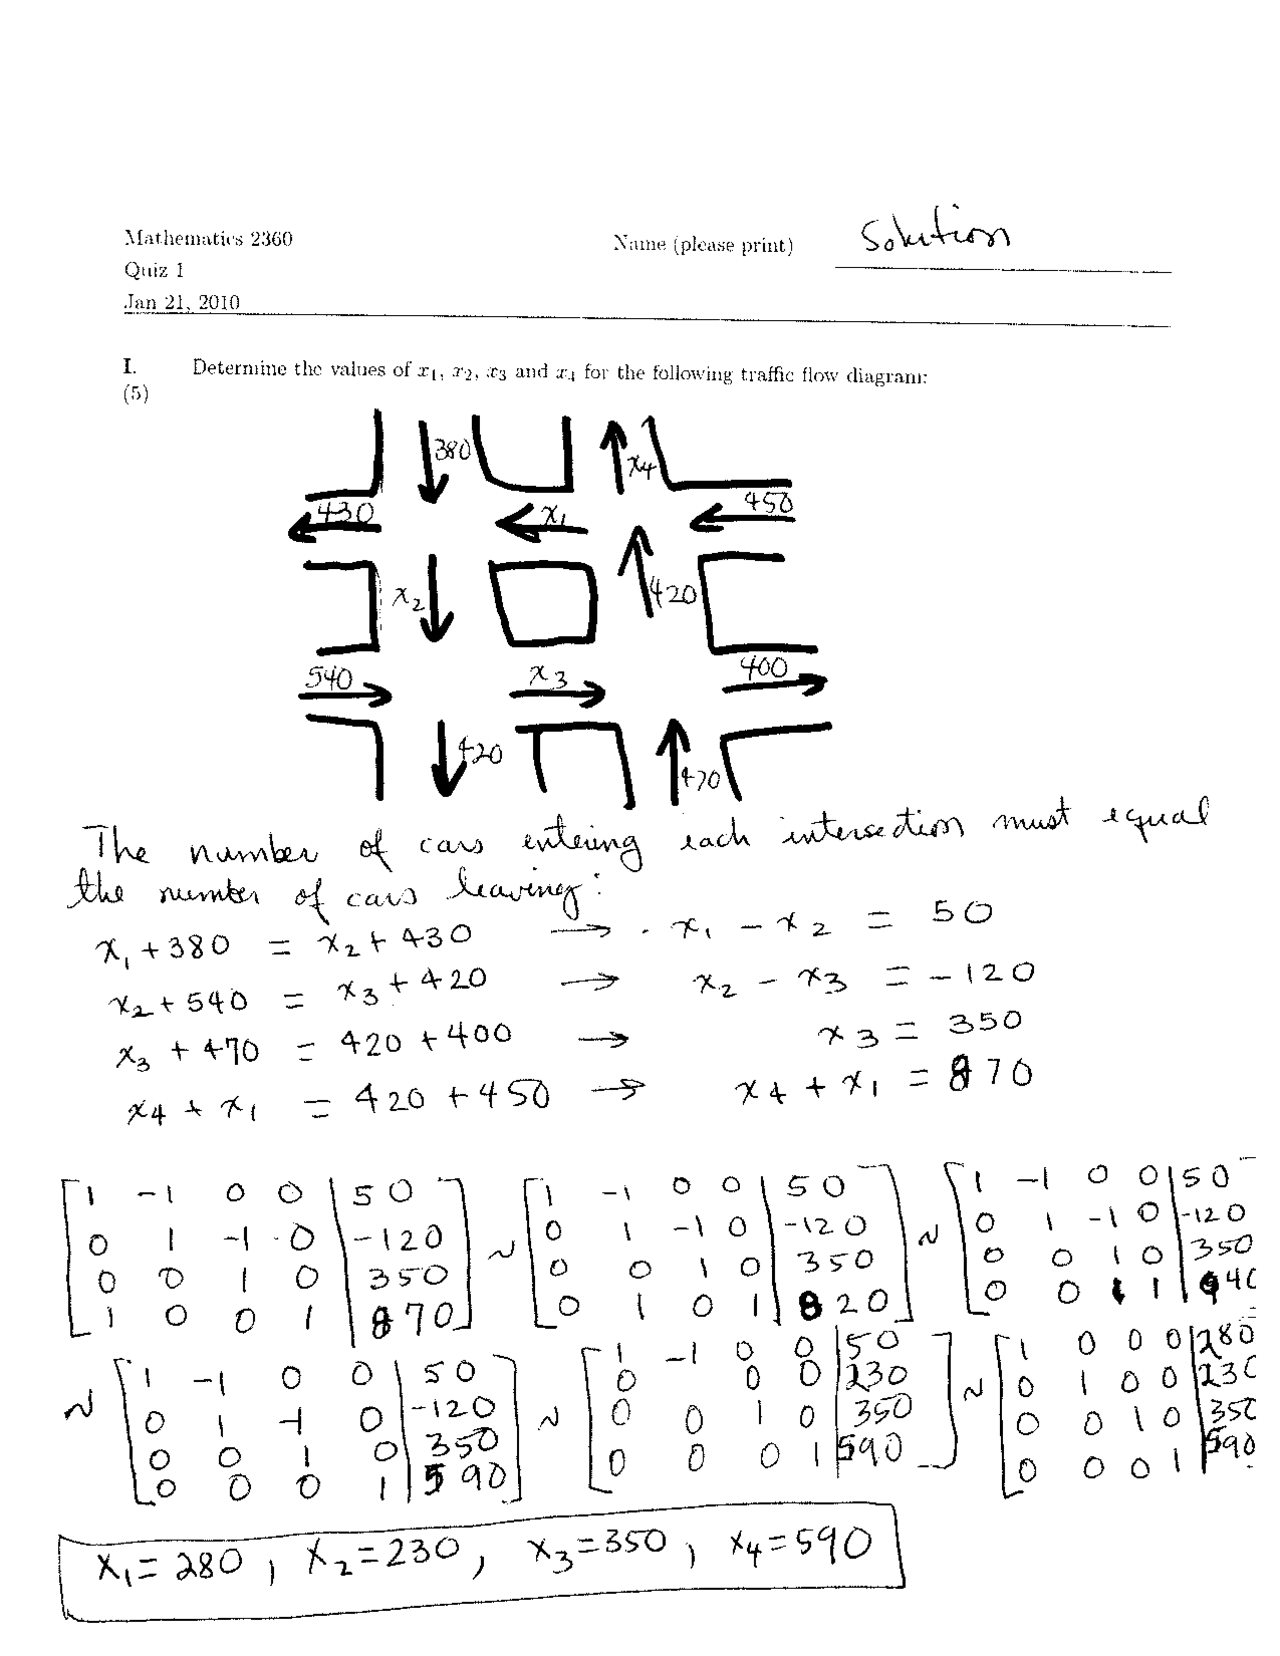 Mathematics 2360 Name (please print) Solution
Quiz 1
Jan 21, 2010
I. Determine the values of x₁, x₂, x₃ and x₄ for the following traffic flow diagram:
(5)
380 x₄
430 x₁ 450
x₂ 420
540 x₃ 400
420 470
The number of cars entering each intersection must equal
the number of cars leaving:
x₁ + 380 = x₂ + 430 → x₁ − x₂ = 50
x₂ + 540 = x₃ + 420 → x₂ − x₃ = −120
x₃ + 470 = 420 + 400 → x₃ = 350
x₄ + x₁ = 420 + 450 → x₄ + x₁ = 870
[1 −1 0 0 | 50] [1 −1 0 0 | 50] [1 −1 0 0 | 50
[0 1 −1 0 | −120] ~ [0 1 −1 0 | −120] ~ [0 1 −1 0 | −120
[0 0 1 0 | 350] [0 0 1 0 | 350] [0 0 1 0 | 350
[1 0 0 1 | 870] [0 1 0 1 | 820] [0 0 1 1 | 940
[1 −1 0 0 | 50] [1 −1 0 0 | 50] [1 0 0 0 | 280
~ [0 1 −1 0 | −120] ~ [0 0 0 | 230] ~ [0 1 0 0 | 230
[0 0 1 0 | 350] [0 0 1 0 | 350] [0 0 1 0 | 350
[0 0 0 1 | 590] [0 0 0 1 | 590] [0 0 0 1 | 590
x₁ = 280, x₂ = 230, x₃ = 350, x₄ = 590